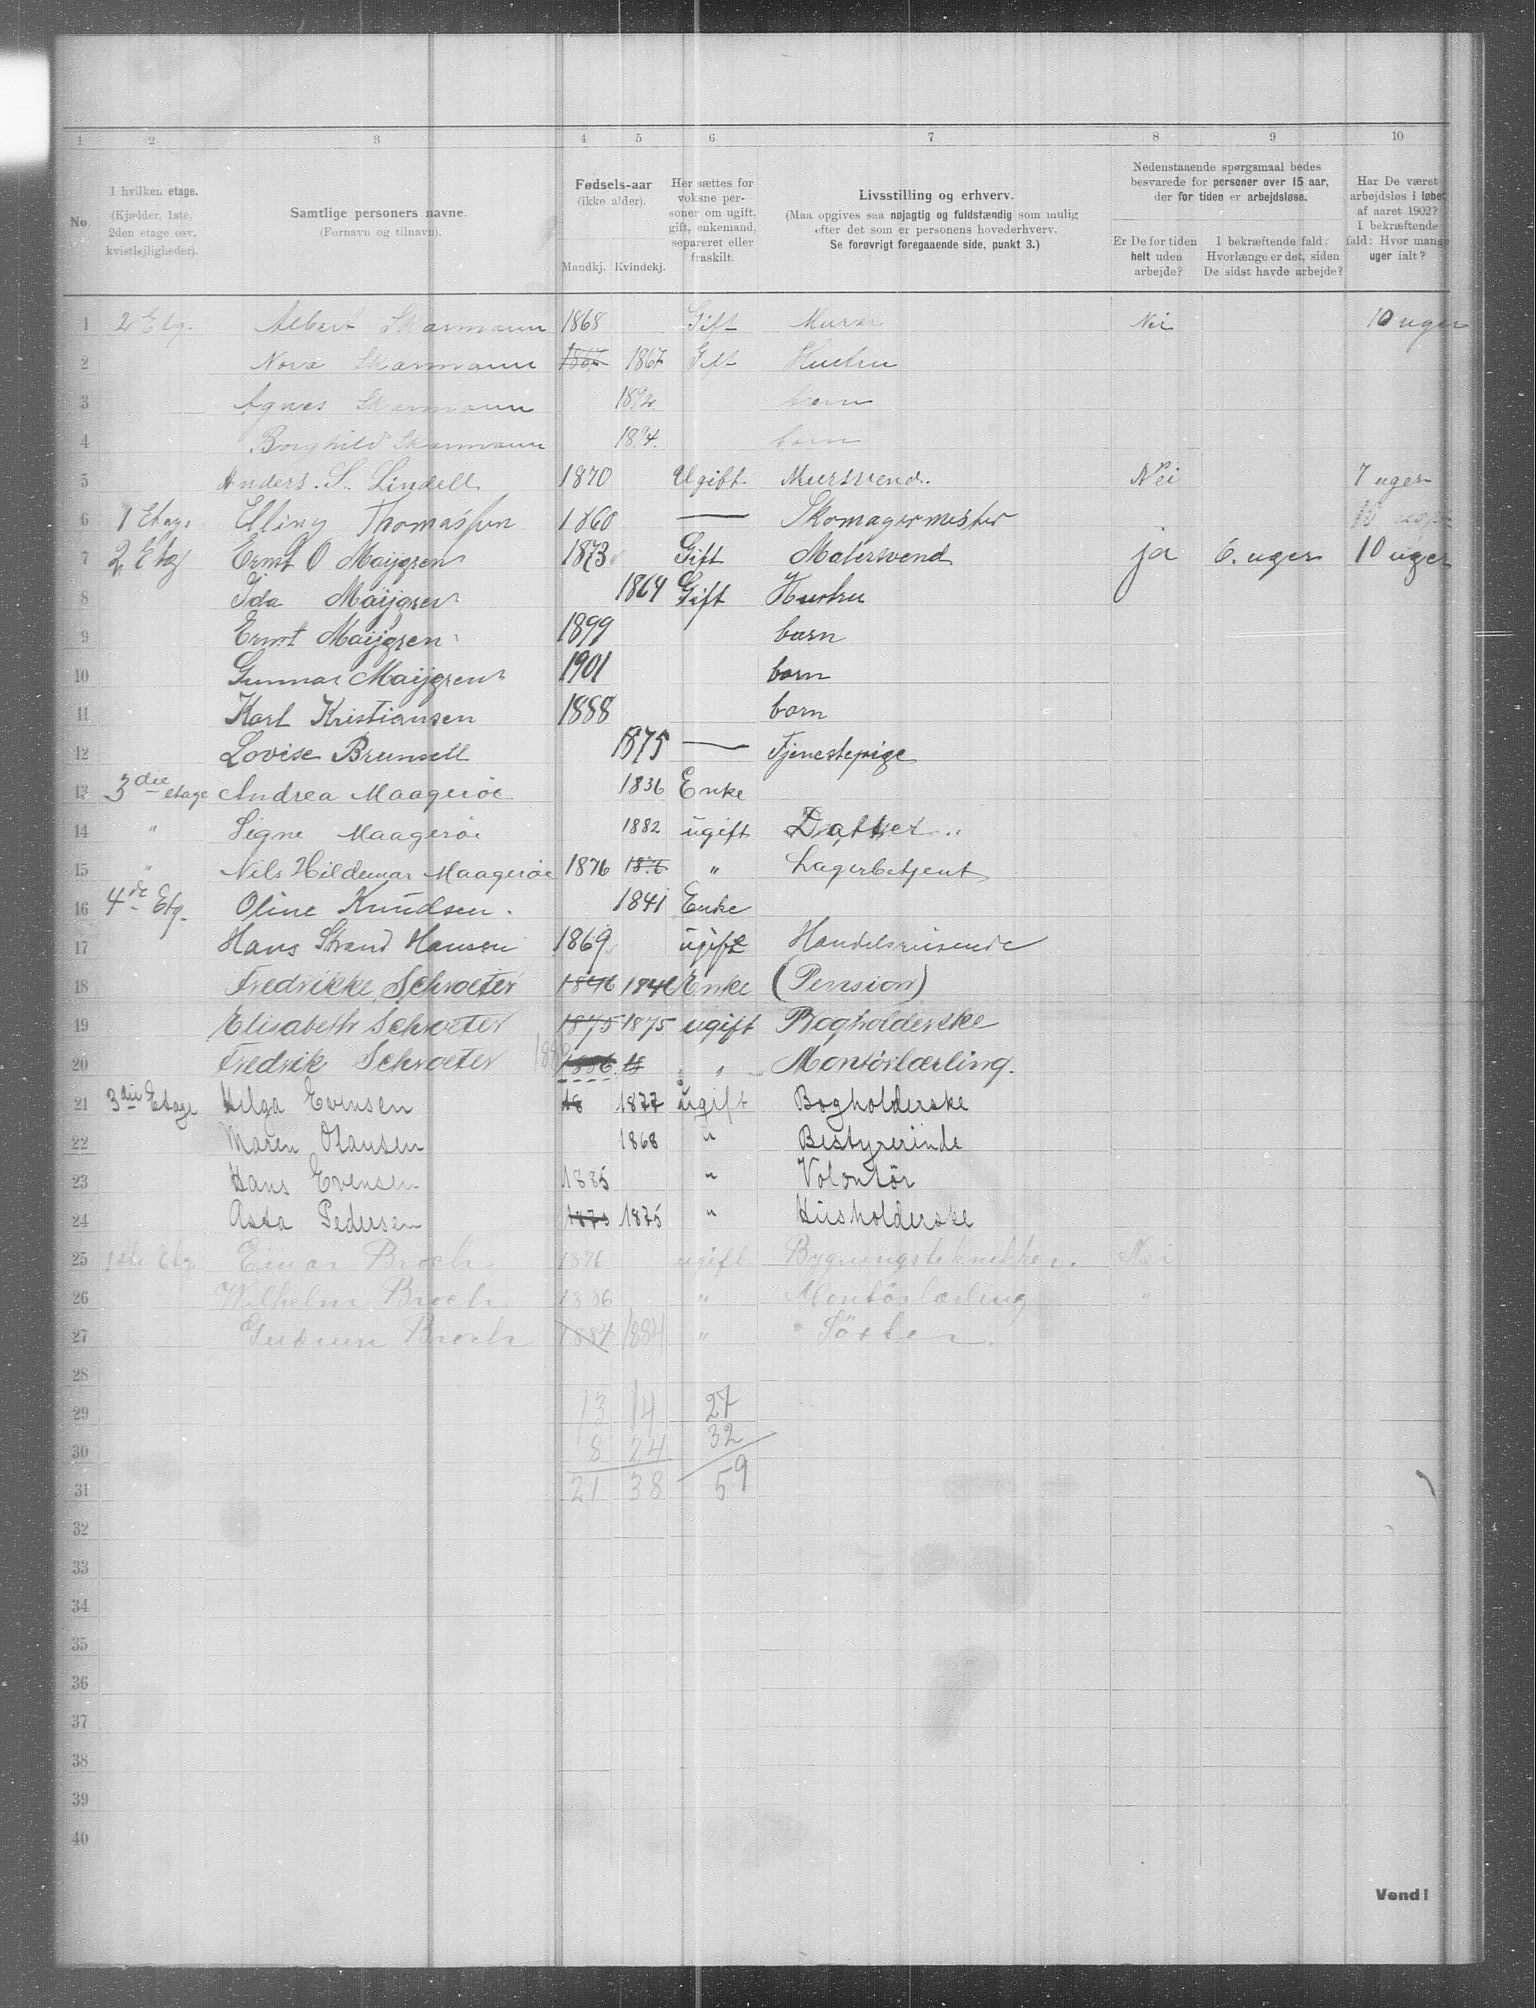 1 2 3 4 5 6 7 8 9 10
No.
I hvilken etage. (Kjælder, 1ste, 2den etage osv. kvistlejligheder).
Samtlige personers navne. (Fornavn og tilnavn).
Fødsels-aar (ikke alder). Mandkj. Kvindekj.
Her sættes for voksne personer om ugift, gift, enkemand, separeret eller fraskilt.
Livsstilling og erhverv. (Maa opgives saa nøjagtig og fuldstændig som mulig efter det som er personens hovederhverv. Se forøvrigt foregaaende side, punkt 3.)
Nedenstaaende spørgsmaal bedes besvarede for personer over 15 aar, der for tiden er arbejdsløse.
Er De for tiden helt uden arbejde?
I bekræftende fald: Hvorlænge er det, siden De sidst havde arbejde?
Har De været arbejdsløs i løbet af aaret 1902? I bekræftende fald: Hvor mange uger ialt?
1 2 Etg. Albert Skarmann 1868 Gift Murer Nei 10 uger
2 Nora Skarmann 1867 1867 Gift Hustru
3 Agnes Skarmann 1892 barn
4 Borghild Skarmann 1894. barn
5 Anders. S. Lindell 1870 Ugift Mursvend. Nei 7 uger
6 1 Etage Elling Thomassen 1860 — Skomagermester 10 uger
7 2 Etag Ernst O Maijgren 1873 Gift Malersvend ja 6. uger 10 uger
8 Ida Maijgren 1864 Gift Hustru
9 Ernst Maijgren 1899 barn
10 Gunnar Maijgren 1901 barn
11 Karl Kristiansen 1888 barn
12 Lovise Brunsell 1875 — Tjenestepige
13 3die etage Andrea Maagerøe 1836 Enke
14 " Signe Maagerøe 1882 ugift Datter "
15 " Nils Hildemar Maagerøe 1876 1876 " Lagerbetjent
16 4de Etg. Oline Knudsen. 1841 Enke
17 Hans Strand Hansen 1869 ugift Handelsreisende
18 Fredrikke Schroeter 1846 1846 Enke (Pension)
19 Elisabeth Schroeter 1875 1875 ugift Bogholderske
20 Fredrik Schroeter 1886 18 " " Montørlærling.
21 3die Etage Helga Evensen 18 1877 ugift Bogholderske
22 Maren Olausen 1868 " Bestyrerinde
23 Hans Evensen 1885 " Volontør
24 Asta Pedersen 1875 1875 " Husholderske
25 1ste Etg Einar Broch 1876 ugift Bygningstekniker. Nei
26 Wilhelm Broch 1886 " Montørlærling "
27 Gudrun Broch 1884 1884 " Søster.
28
29 13 14 27
30 8 24 32
31 21 38 59
32
33
34
35
36
37
38
39
40
Vend!